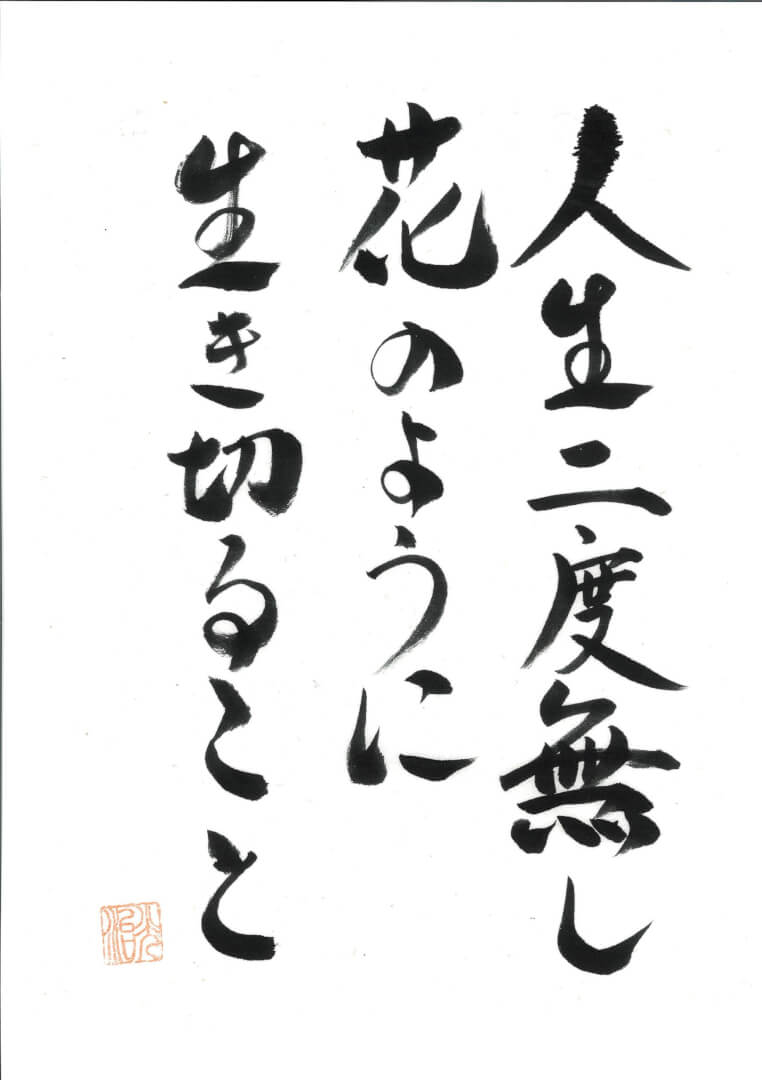 人生二度無し
花のように
生き切ること